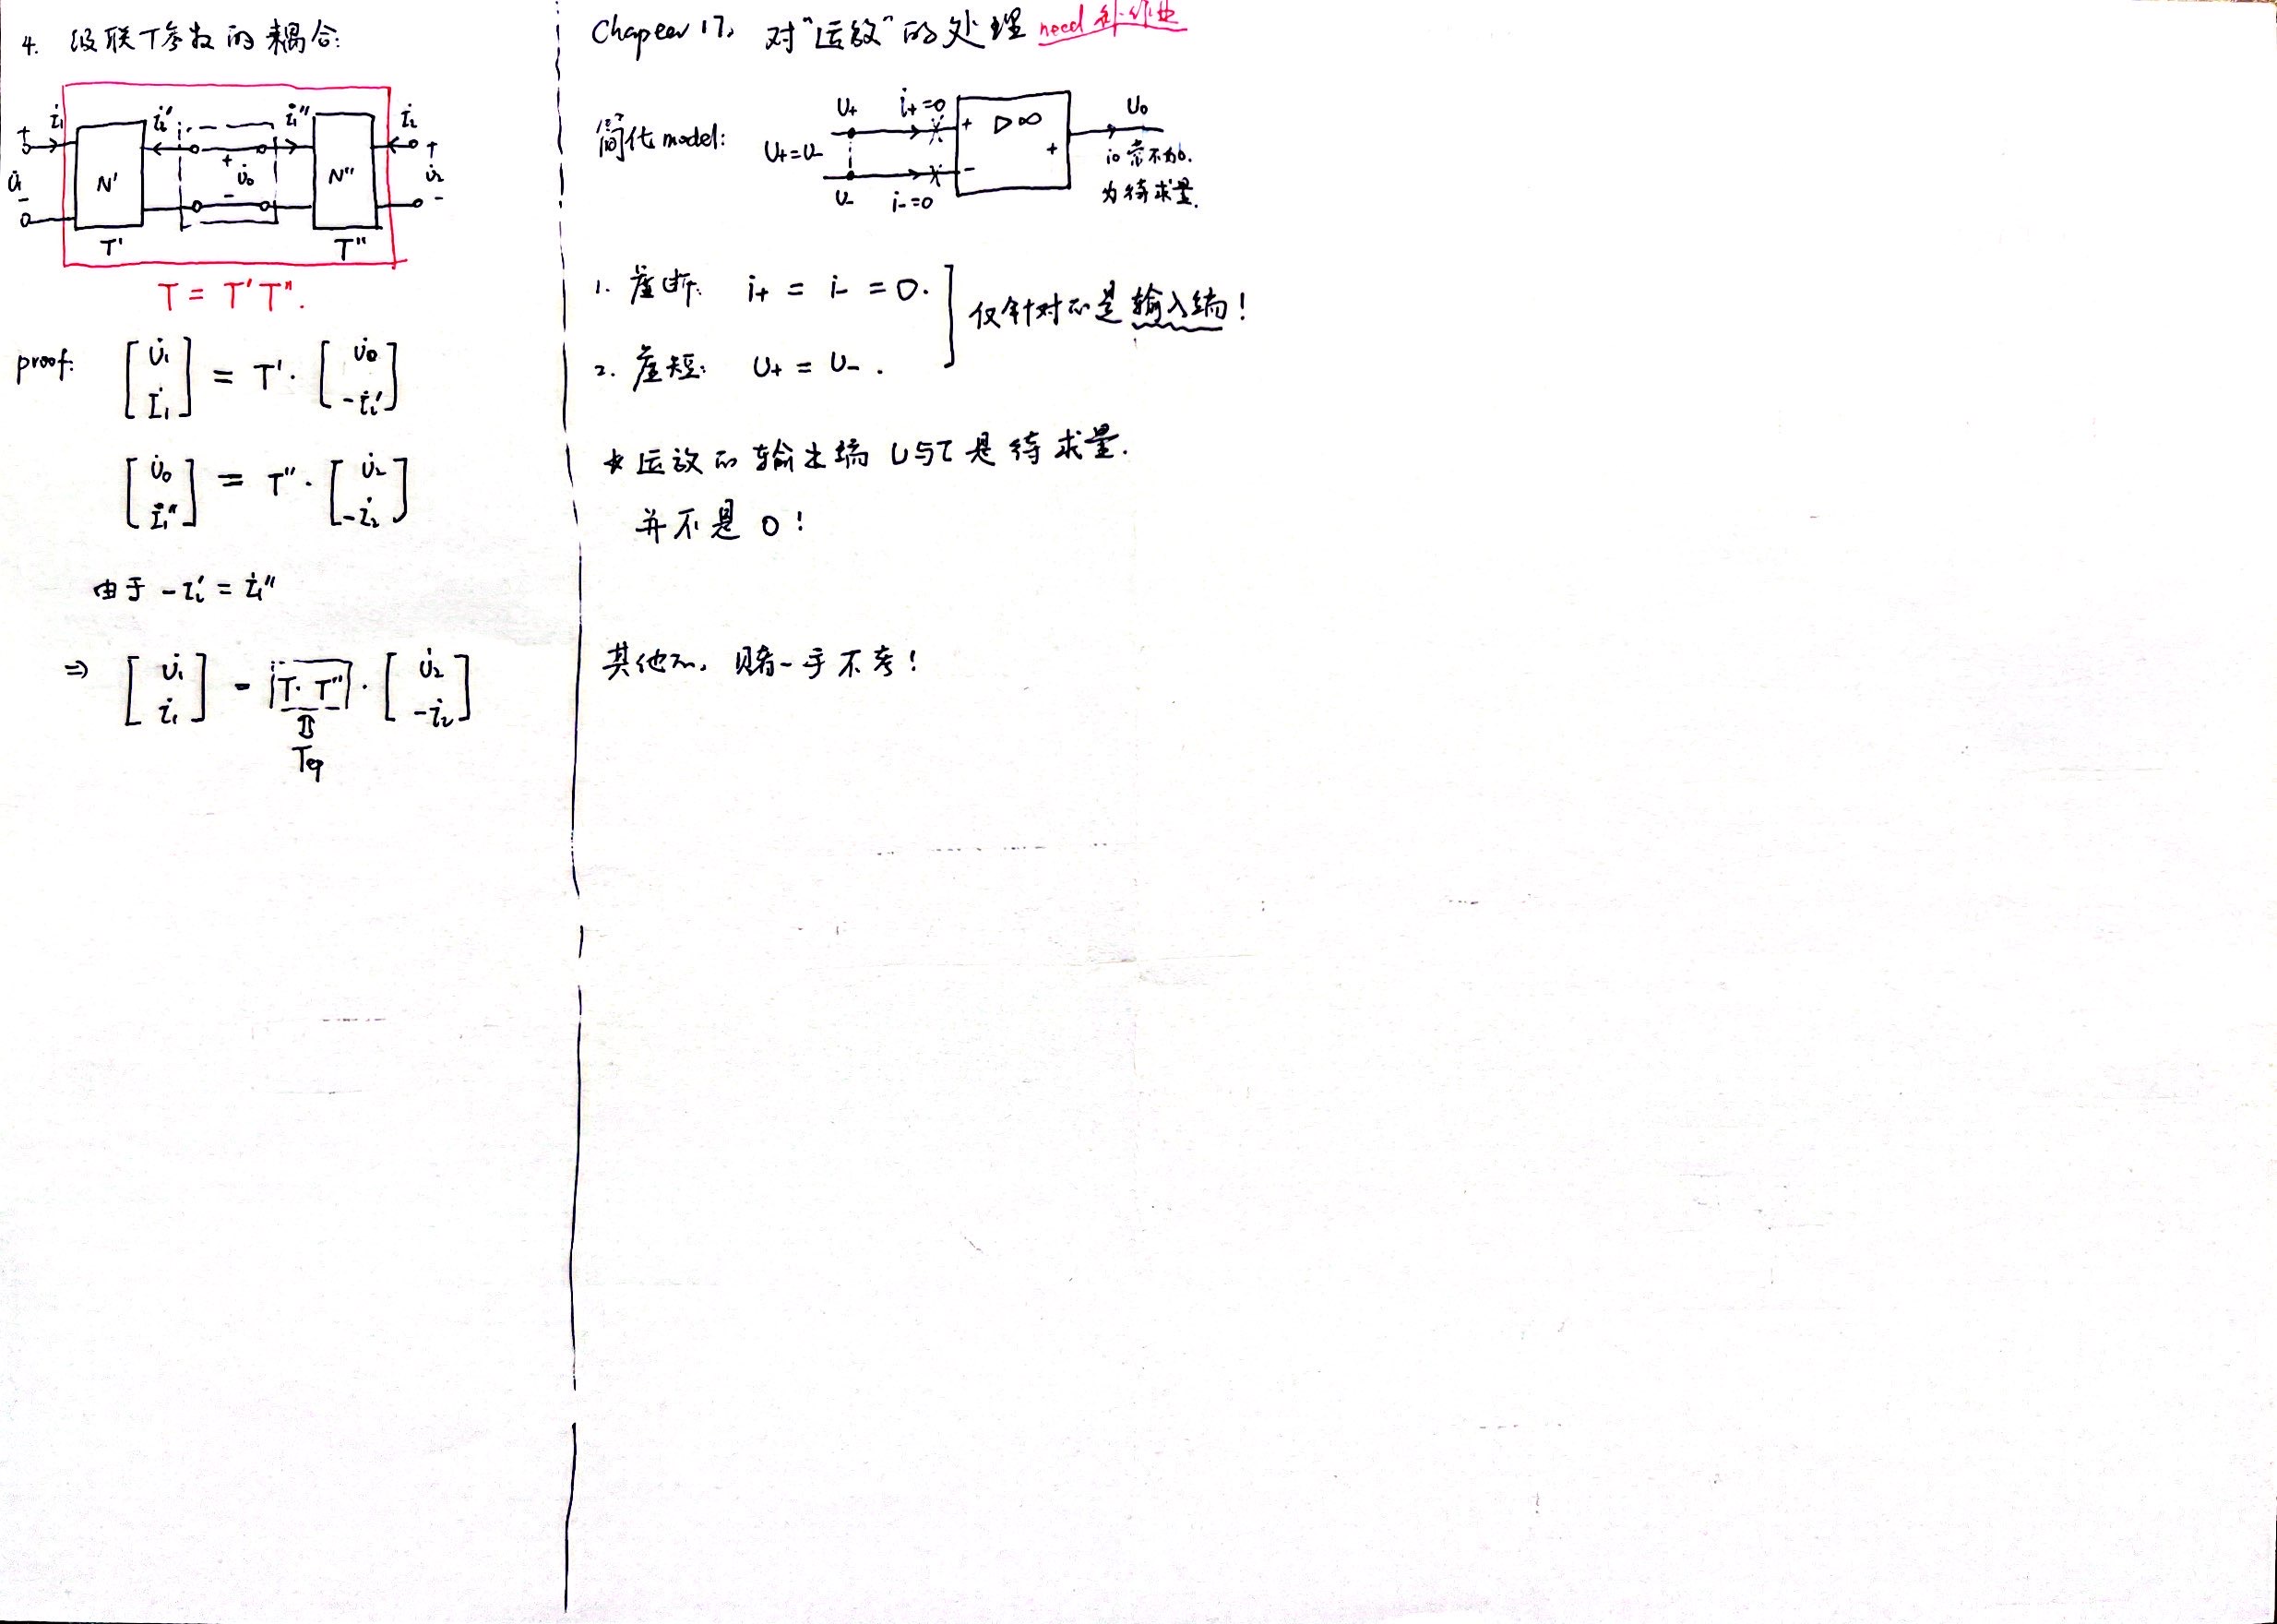 4. 级联T参数的耦合:
İ₁ İ₂' İ₁'' İ₂
+ + +
U̇₁ N' U̇₀ N'' U̇₂
- - -
T' T''
T = T'T''.
proof: [U̇₁ İ₁] = T'·[U̇₀ -İ₂']
[U̇₀ İ₁''] = T''·[U̇₂ -İ₂]
由于 -İ₂' = İ₁''
⇒ [U̇₁ İ₁] = T·T''·[U̇₂ -İ₂]
Teq
Chapter 17, 对"运放"的处理 need 补作业
简化model: U+=U-
U+ i+=0 + ▷∞ + U₀
U- i-=0 -
i₀常不为0.
为待求量.
1. 虚断: i+ = i- = 0.
2. 虚短: U+ = U-.
仅针对的是输入端!
* 运放的输出端U与I是待求量.
并不是0!
其他的, 赌一手不考!